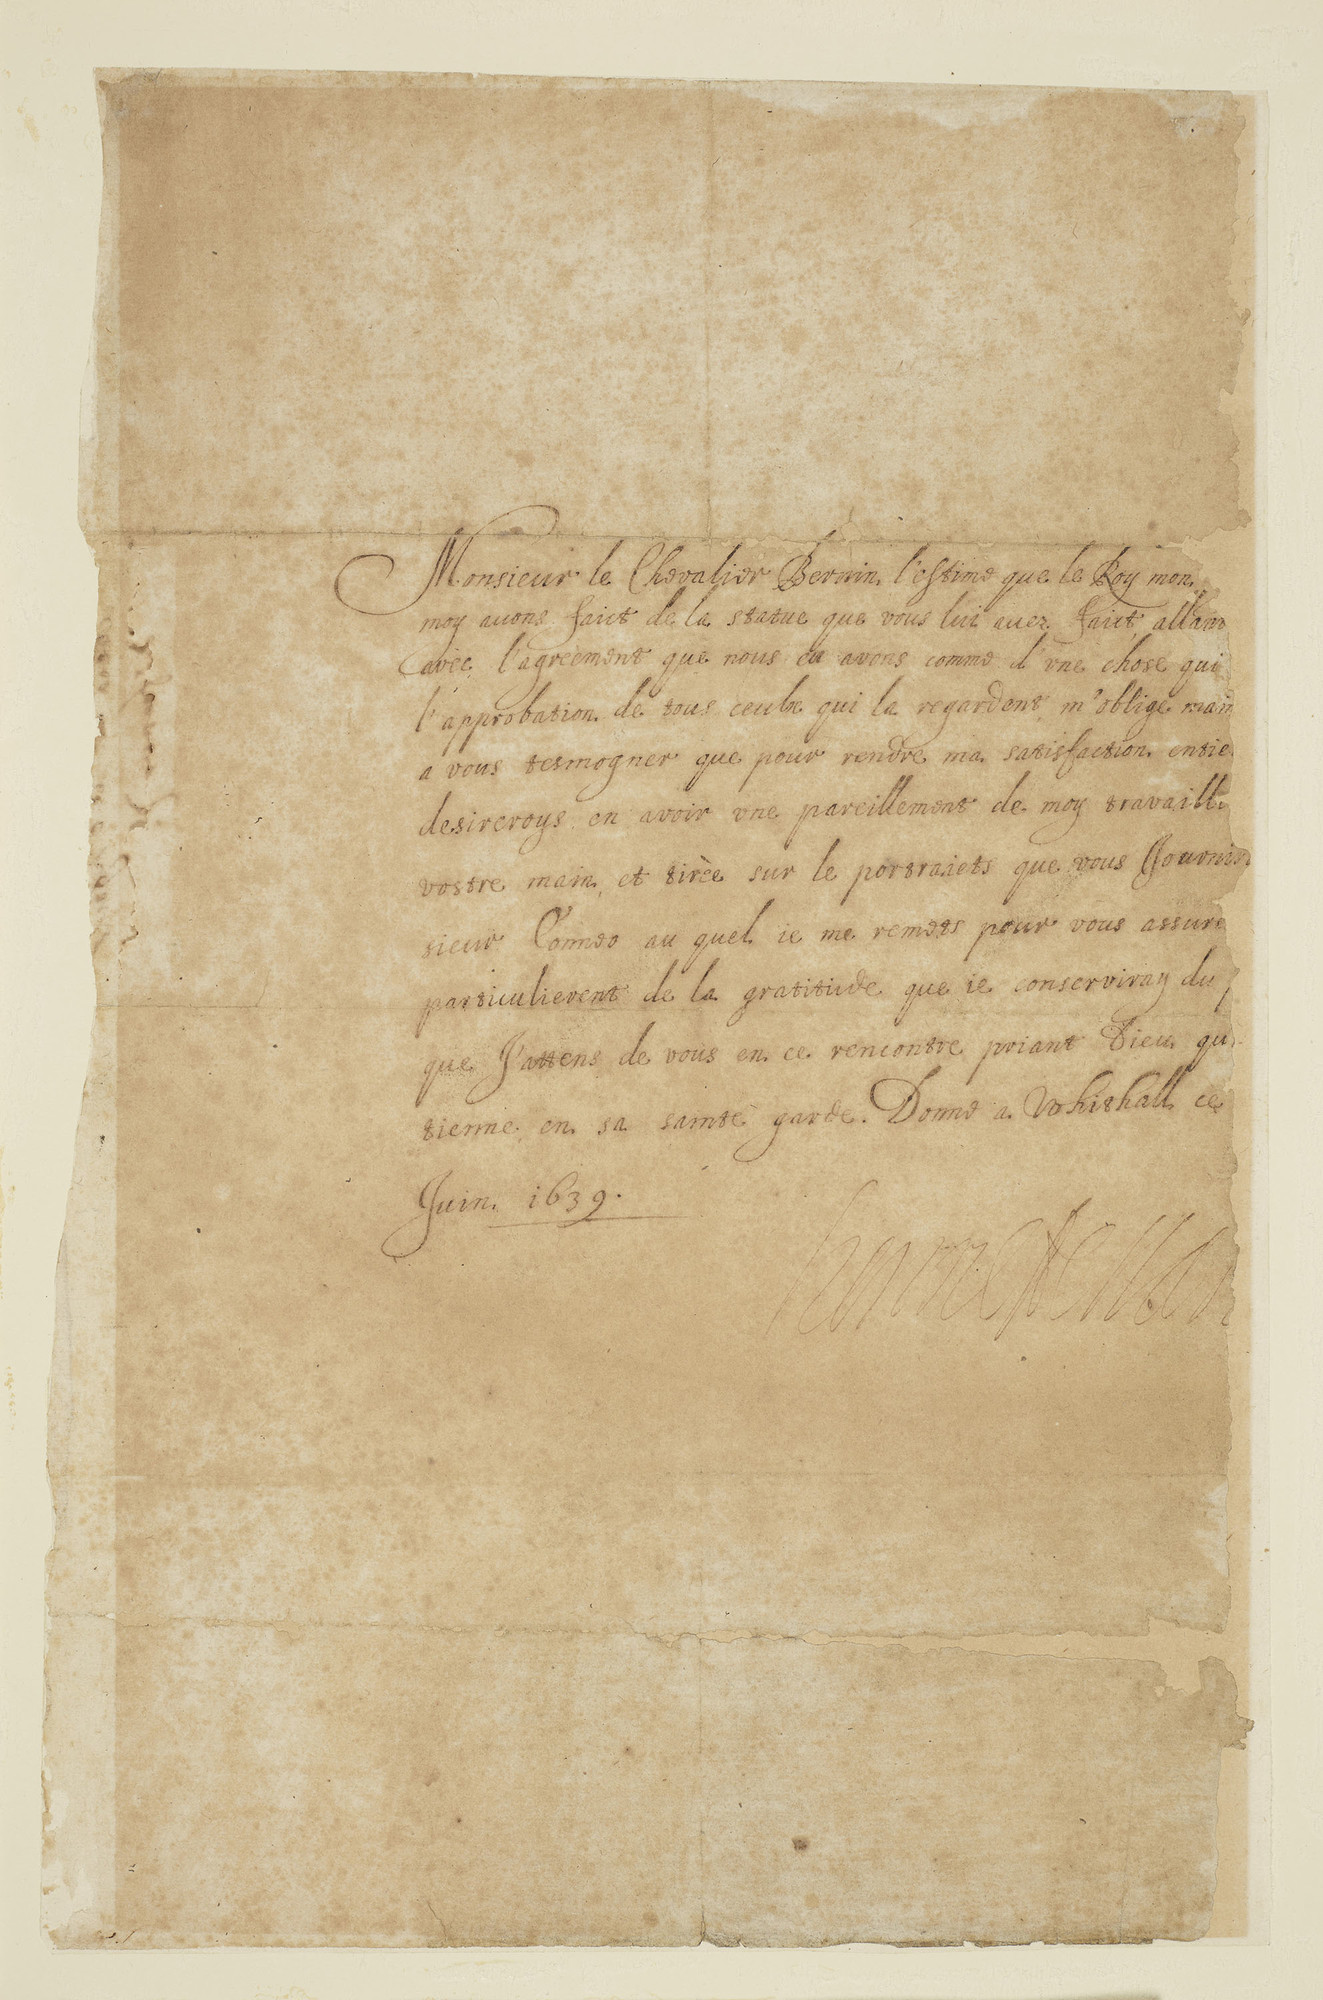 Monsieur le Chevalier Bernin, l'estime que le Roy mon
moy auons faict de la statue que vous lui auez faict, allant
avèc l'agreement que nous en avons comme d'vne chose qui
l'approbation de tous ceulx qui la regardent, m'oblige main
a vous tesmogner que pour rendre ma satisfaction entie
desireroys en avoir vne pareillement de moy travaille
vostre main, et tirèe sur le portraicts que vous fournir
sieur Conneo au quel ie me remets pour vous assure
particulierent de la gratitude que ie conserviray du p
que J'attens de vous en ce rencontre priant Dieu qu
tienne en sa sainte garde. Donne a Whithall ce
Juin. 1639.